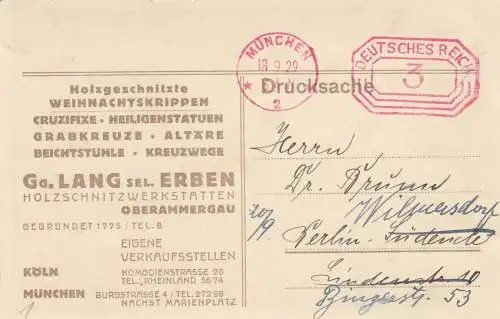 MÜNCHEN
18.9.29
2
DEUTSCHES REICH
3
Drucksache
Holzgeschnitzte
WEIHNACHTSKRIPPEN
CRUZIFIXE · HEILIGENSTATUEN
GRABKREUZE · ALTÄRE
BEICHTSTÜHLE · KREUZWEGE
Gg. LANG SEL. ERBEN
HOLZSCHNITZWERKSTÄTTEN
OBERAMMERGAU
GEGRÜNDET 1775 / TEL. 8
EIGENE
VERKAUFSSTELLEN
KÖLN KOMÖDIENSTRASSE 20
TEL., RHEINLAND 5674
MÜNCHEN BURGSTRASSE 4 / TEL. 27298
NÄCHST MARIENPLATZ
Herrn
Dr. Brunn
Wilmersdorf
Berlin-Südende
Lindenstr. 10
Bingerstr. 53